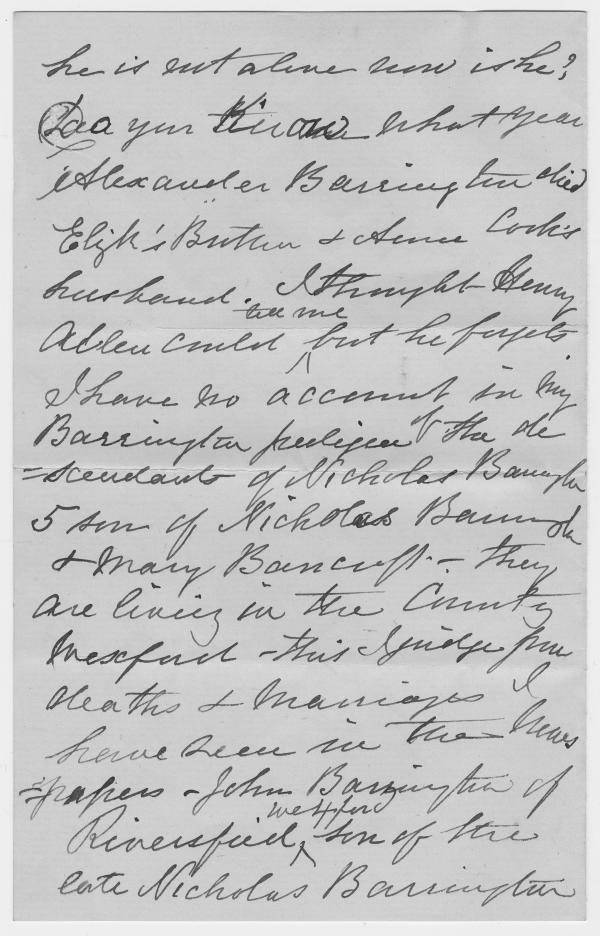 he is not alive now is he?
Doo you Know what year
Alexander Barrington died
Elizh's Brother & Anne Cock's
husband. I thought Henry
Allen could tell me but he forgets
I have no account in my
Barrington pedigree of the de
=scendants of Nicholas Barrington
5 son of Nicholas Barrington
& Mary Bancroft - they
are living in the County
Wexford - this I judge from
deaths & Marriages I
have seen in the News
=papers - John Barrington of
Riversfield, Wexford son of the
late Nicholas Barrington